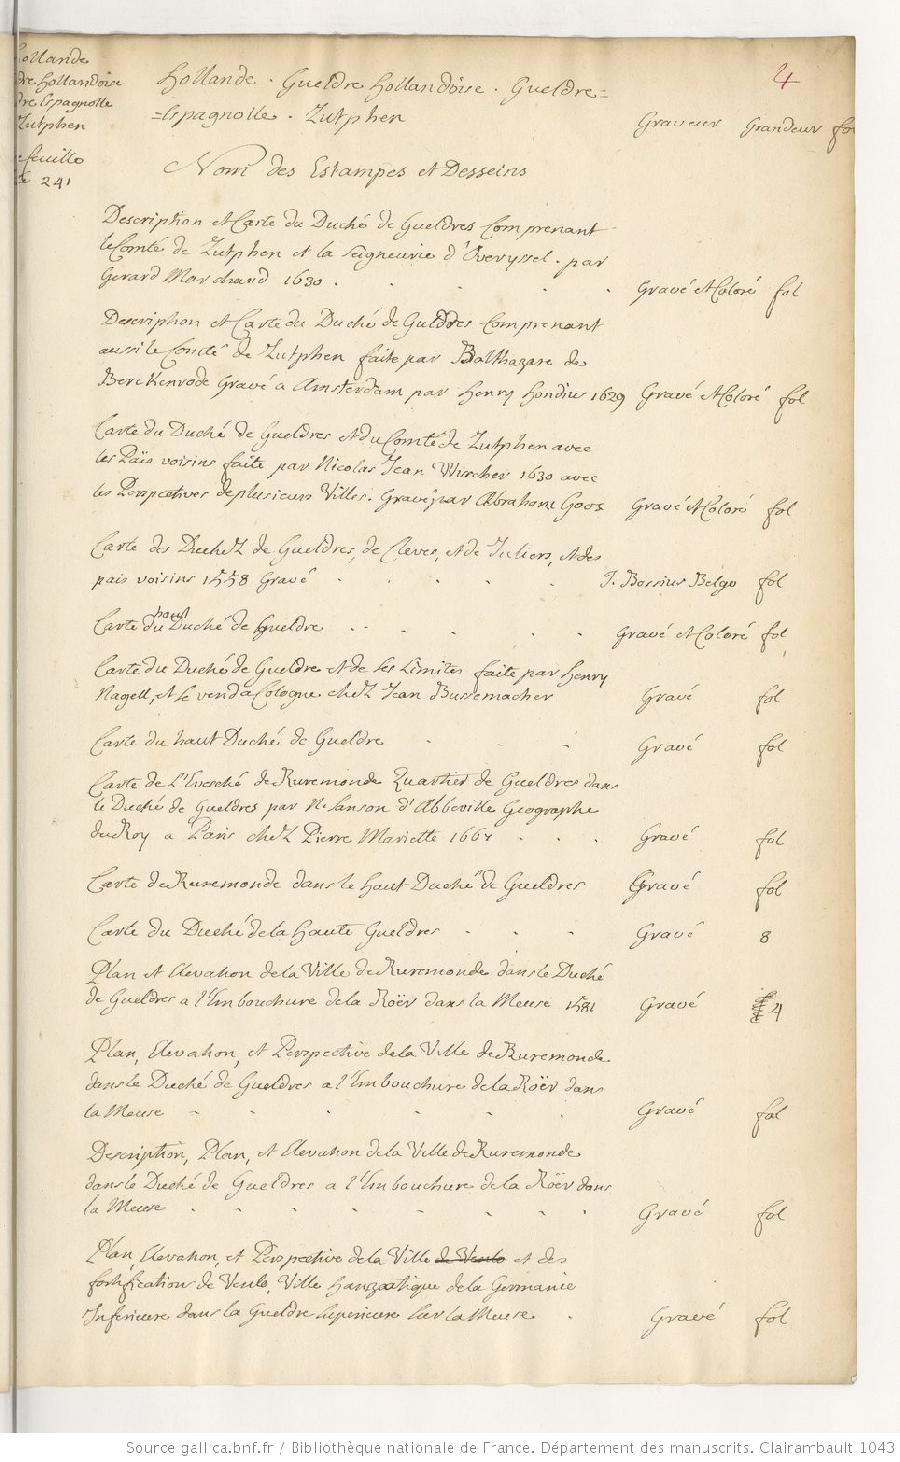 Hollande
dre hollandoise
dre Espagnolle
Zutphen
feuille
de 241
Hollande . Gueldre Hollandoise . Gueldre=
=Espagnolle . Zutphen
4
Graveur Grandeur fo
Nom des Estampes et Desseins
Description et Carte du Duché de Gueldres Comprenant
le Comté de Zutphen et la Seigneurie d'Overyssel . par
Gerard Marchand 1630 . . . . . Gravé et Coloré fol
Description et Carte du Duché de Gueldres Comprenant
aussi le Comté de Zutphen faite par Balthazare de
Berckenrode Gravé a Amsterdam par Henry Hondius 1629 Gravé et Coloré fol
Carte du Duché de Gueldres et du Comté de Zutphen avec
les Païs voisins faite par Nicolas Jean Wisscher 1630 avec
les Perspectives de plusieurs Villes. Gravé par Abraham Goos Gravé et Coloré fol
Carte des Duchez de Gueldres, de Cleves, et de Juliers, et des
pais voisins 1558 Gravé . . . . . J. Bossius Belga fol
Carte du haut Duché de Gueldre . . . . . . Gravé et Coloré fol
Carte du Duché de Gueldre et de ses Limites faite par Henry
Nagell, et se vend a Cologne chez Jean Bussemacher Gravé fol
Carte du haut Duché de Gueldre . . Gravé fol
Carte de L'Evesché de Ruremonde Quartier de Gueldres dans
le Duché de Gueldres par N. Sanson d'Abbeville Geographe
du Roy a Paris chez Pierre Mariette 1667 . . . Gravé fol
Carte de Ruremonde dans le haut Duché de Gueldres Gravé fol
Carte du Duché de la haute Gueldres . . . Gravé 8
Plan et Elevation de la Ville de Ruremonde dans le Duché
de Gueldres a l'Embouchure de la Roër dans la Meuse 1581 Gravé 4
Plan, Elevation, et Perspective de la Ville de Ruremonde
dans le Duché de Gueldres a l'Embouchure de la Roër dans
la Meuse . . . . . . . Gravé fol
Description, Plan, et Elevation de la Ville de Ruremonde
dans le Duché de Gueldres a l'Embouchure de la Roër dans
la Meuse . . . . . . . . Gravé fol
Plan, Elevation, et Perspective de la Ville de Venlo et des
fortification de Venlo, Ville hanzeatique de la Germanie
Inferieure dans la Gueldre Superieure sur la Meuse . Gravé fol
Source gallica.bnf.fr / Bibliothèque nationale de France. Département des manuscrits. Clairambault 1043